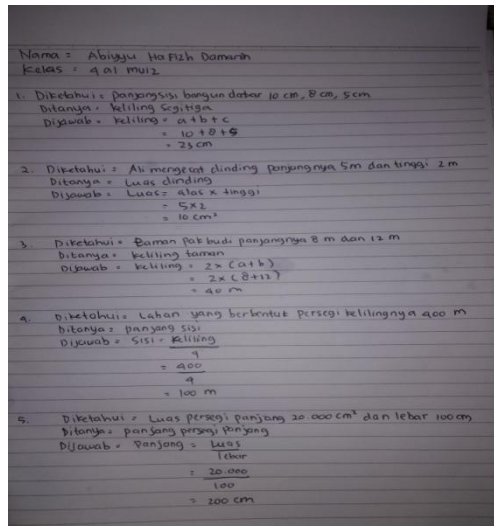 Nama = Abiyyu Hafizh Damanih
Kelas = 4 al muiz
1. Diketahui = panjang sisi bangun datar 10 cm, 8 cm, 5 cm
Ditanya = keliling segitiga
Dijawab = keliling = a+b+c
= 10+8+5
= 23 cm
2. Diketahui = Ali mengecat dinding panjangnya 5m dan tinggi 2m
Ditanya = Luas dinding
Dijawab = Luas = alas x tinggi
= 5x2
= 10 cm²
3. Diketahui = taman pak budi panjangnya 8 m dan 12 m
Ditanya = keliling taman
Dijawab = keliling = 2x (a+b)
= 2x (8+12)
= 40 m
4. Diketahui = Lahan yang berbentuk persegi kelilingnya 400 m
Ditanya = panjang sisi
Dijawab = sisi = keliling
4
= 400
4
= 100 m
5. Diketahui = Luas persegi panjang 20.000 cm² dan lebar 100 cm
Ditanya = panjang persegi panjang
Dijawab = Panjang = Luas
lebar
= 20.000
100
= 200 cm